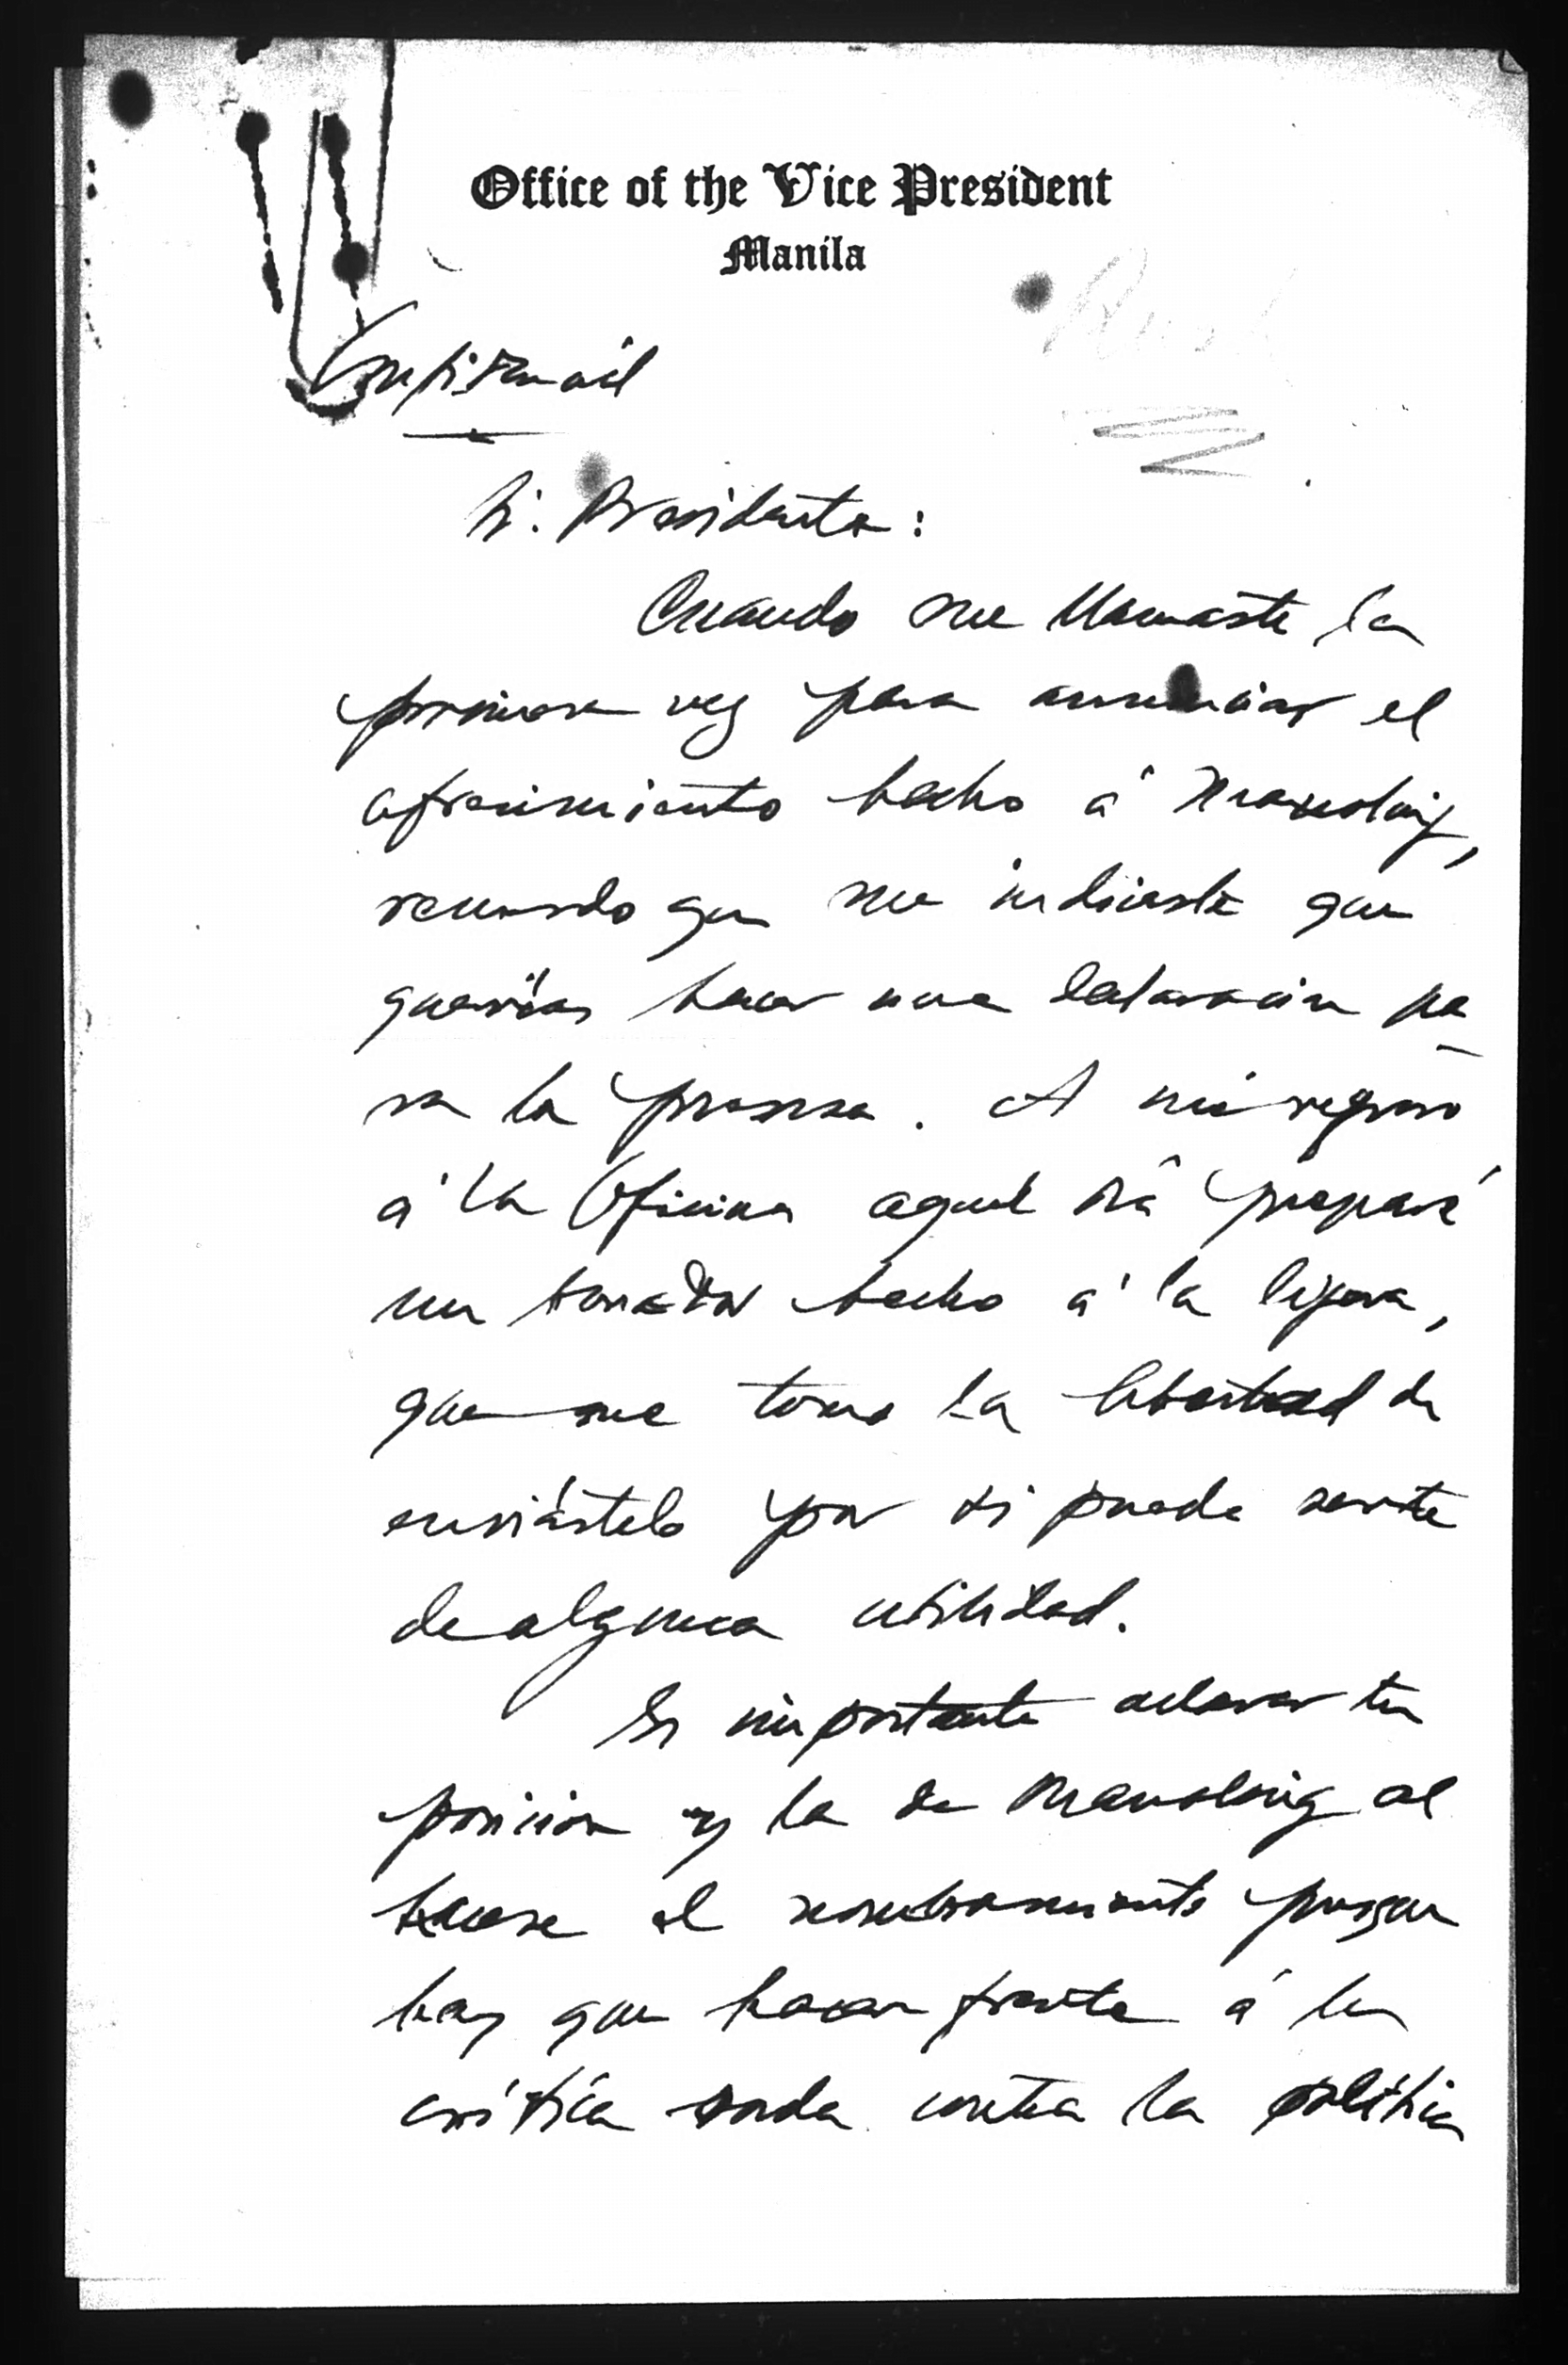 Office of the Vice President
Manila
Rush
Confidencial
Sr. Presidente:
Cuando me llamaste la
primera vez para anunciar el
ofrecimiento hecho á Manoling,
recuerdo que me indicaste que
querías hacer una declaración pa
ra la prensa. A mi regreso
á la Oficina aquel día preparé
un borrador hecho á la ligera,
que me tomo la libertad de
enviártelo por si puede serte
de alguna utilidad.
Es importante aclarar tu
posición y la de Manoling al
hacerse el nombramiento porque
hay que hacer frente á la
crítica contra la política